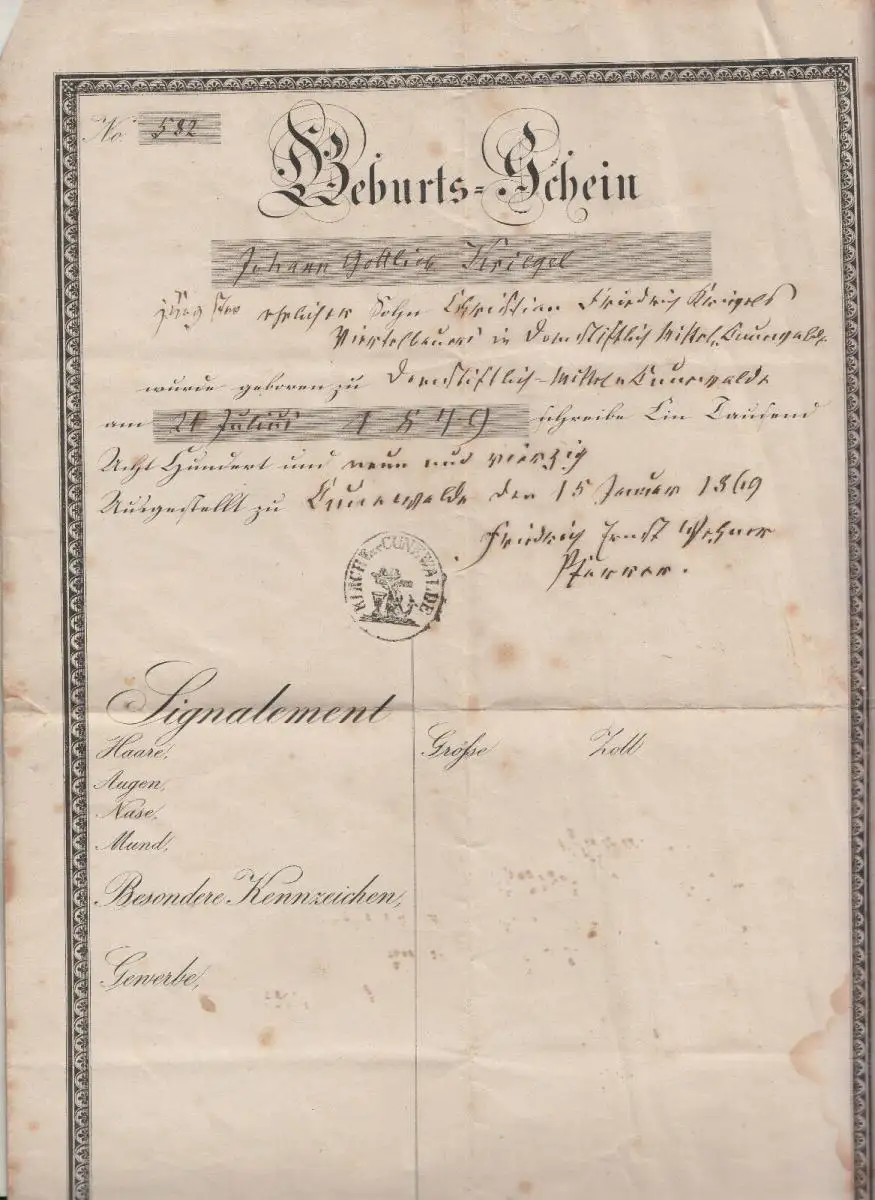 No. 532
Geburts=Schein
Johann Gottlieb Kriegel
jüngster ehelicher Sohn Christian Friedrich Kriegels
Viertelbauers in Domstiftlich Mittel-Cunewalde
wurde geboren zu Domstiftlich-Mittel-Cunewalde
am Julius 1849 schreibe Ein Tausend
Acht Hundert und neun und vierzig
Ausgestellt zu Cunewalde den 15 Januar 1869
Friedrich Ernst Wehner
Pfarrer.
KIRCHE CUNEWALDE
Signalement
Haare,
Größe Zoll
Augen,
Nase,
Mund,
Besondere Kennzeichen,
Gewerbe,